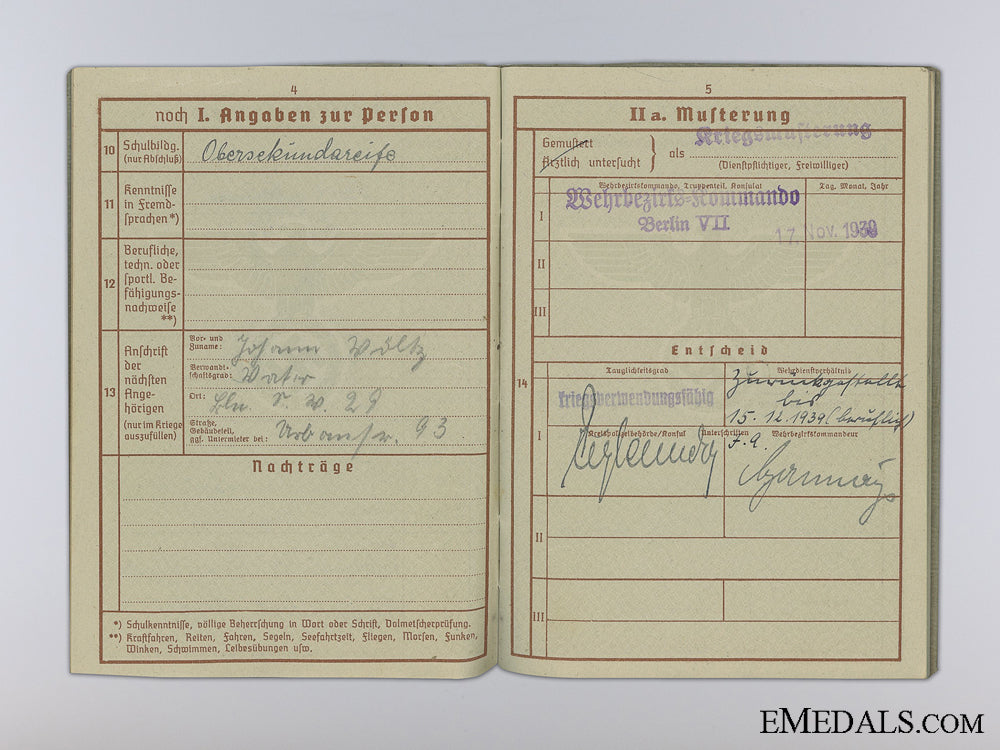 4
noch I. Angaben zur Person
10 Schulbildg. (nur Abschluß) Obersekundareife
11 Kenntnisse in Fremd-
sprachen *)
12 Berufliche,
techn. oder
sportl. Be-
fähigungs-
nachweise
**)
13 Anschrift
der
nächsten
Ange-
hörigen
(nur im Kriege
auszufüllen)
Vor- und
Zuname: Johann Woltz
Verwandt-
schaftsgrad: Vater
Ort: Bln. S. W. 29
Straße,
Gebäudeteil,
ggf. Untermieter bei: Urbanstr. 93
Nachträge
*) Schulkenntnisse, völlige Beherrschung in Wort oder Schrift, Dolmetscherprüfung.
**) Kraftfahren, Reiten, Fahren, Segeln, Seefahrtzeit, Fliegen, Morsen, Funken,
Winken, Schwimmen, Leibesübungen usw.
5
II a. Musterung
Gemustert
Ärztlich untersucht } als Kriegsmusterung
(Dienstpflichtiger, Freiwilliger)
Wehrbezirkskommando, Truppenteil, Konsulat Tag, Monat, Jahr
I Wehrbezirks-Kommando
Berlin VII 17. Nov. 1939
II
III
Entscheid
14
Tauglichkeitsgrad Wehrdienstverhältnis
kriegsverwendungsfähig Zurückgestellt
bis
15. 12. 1939 (beruflich)
I Kreispolizeibehörde/Konsul Unterschriften Wehrbezirkskommandeur
II
III
EMEDALS.COM